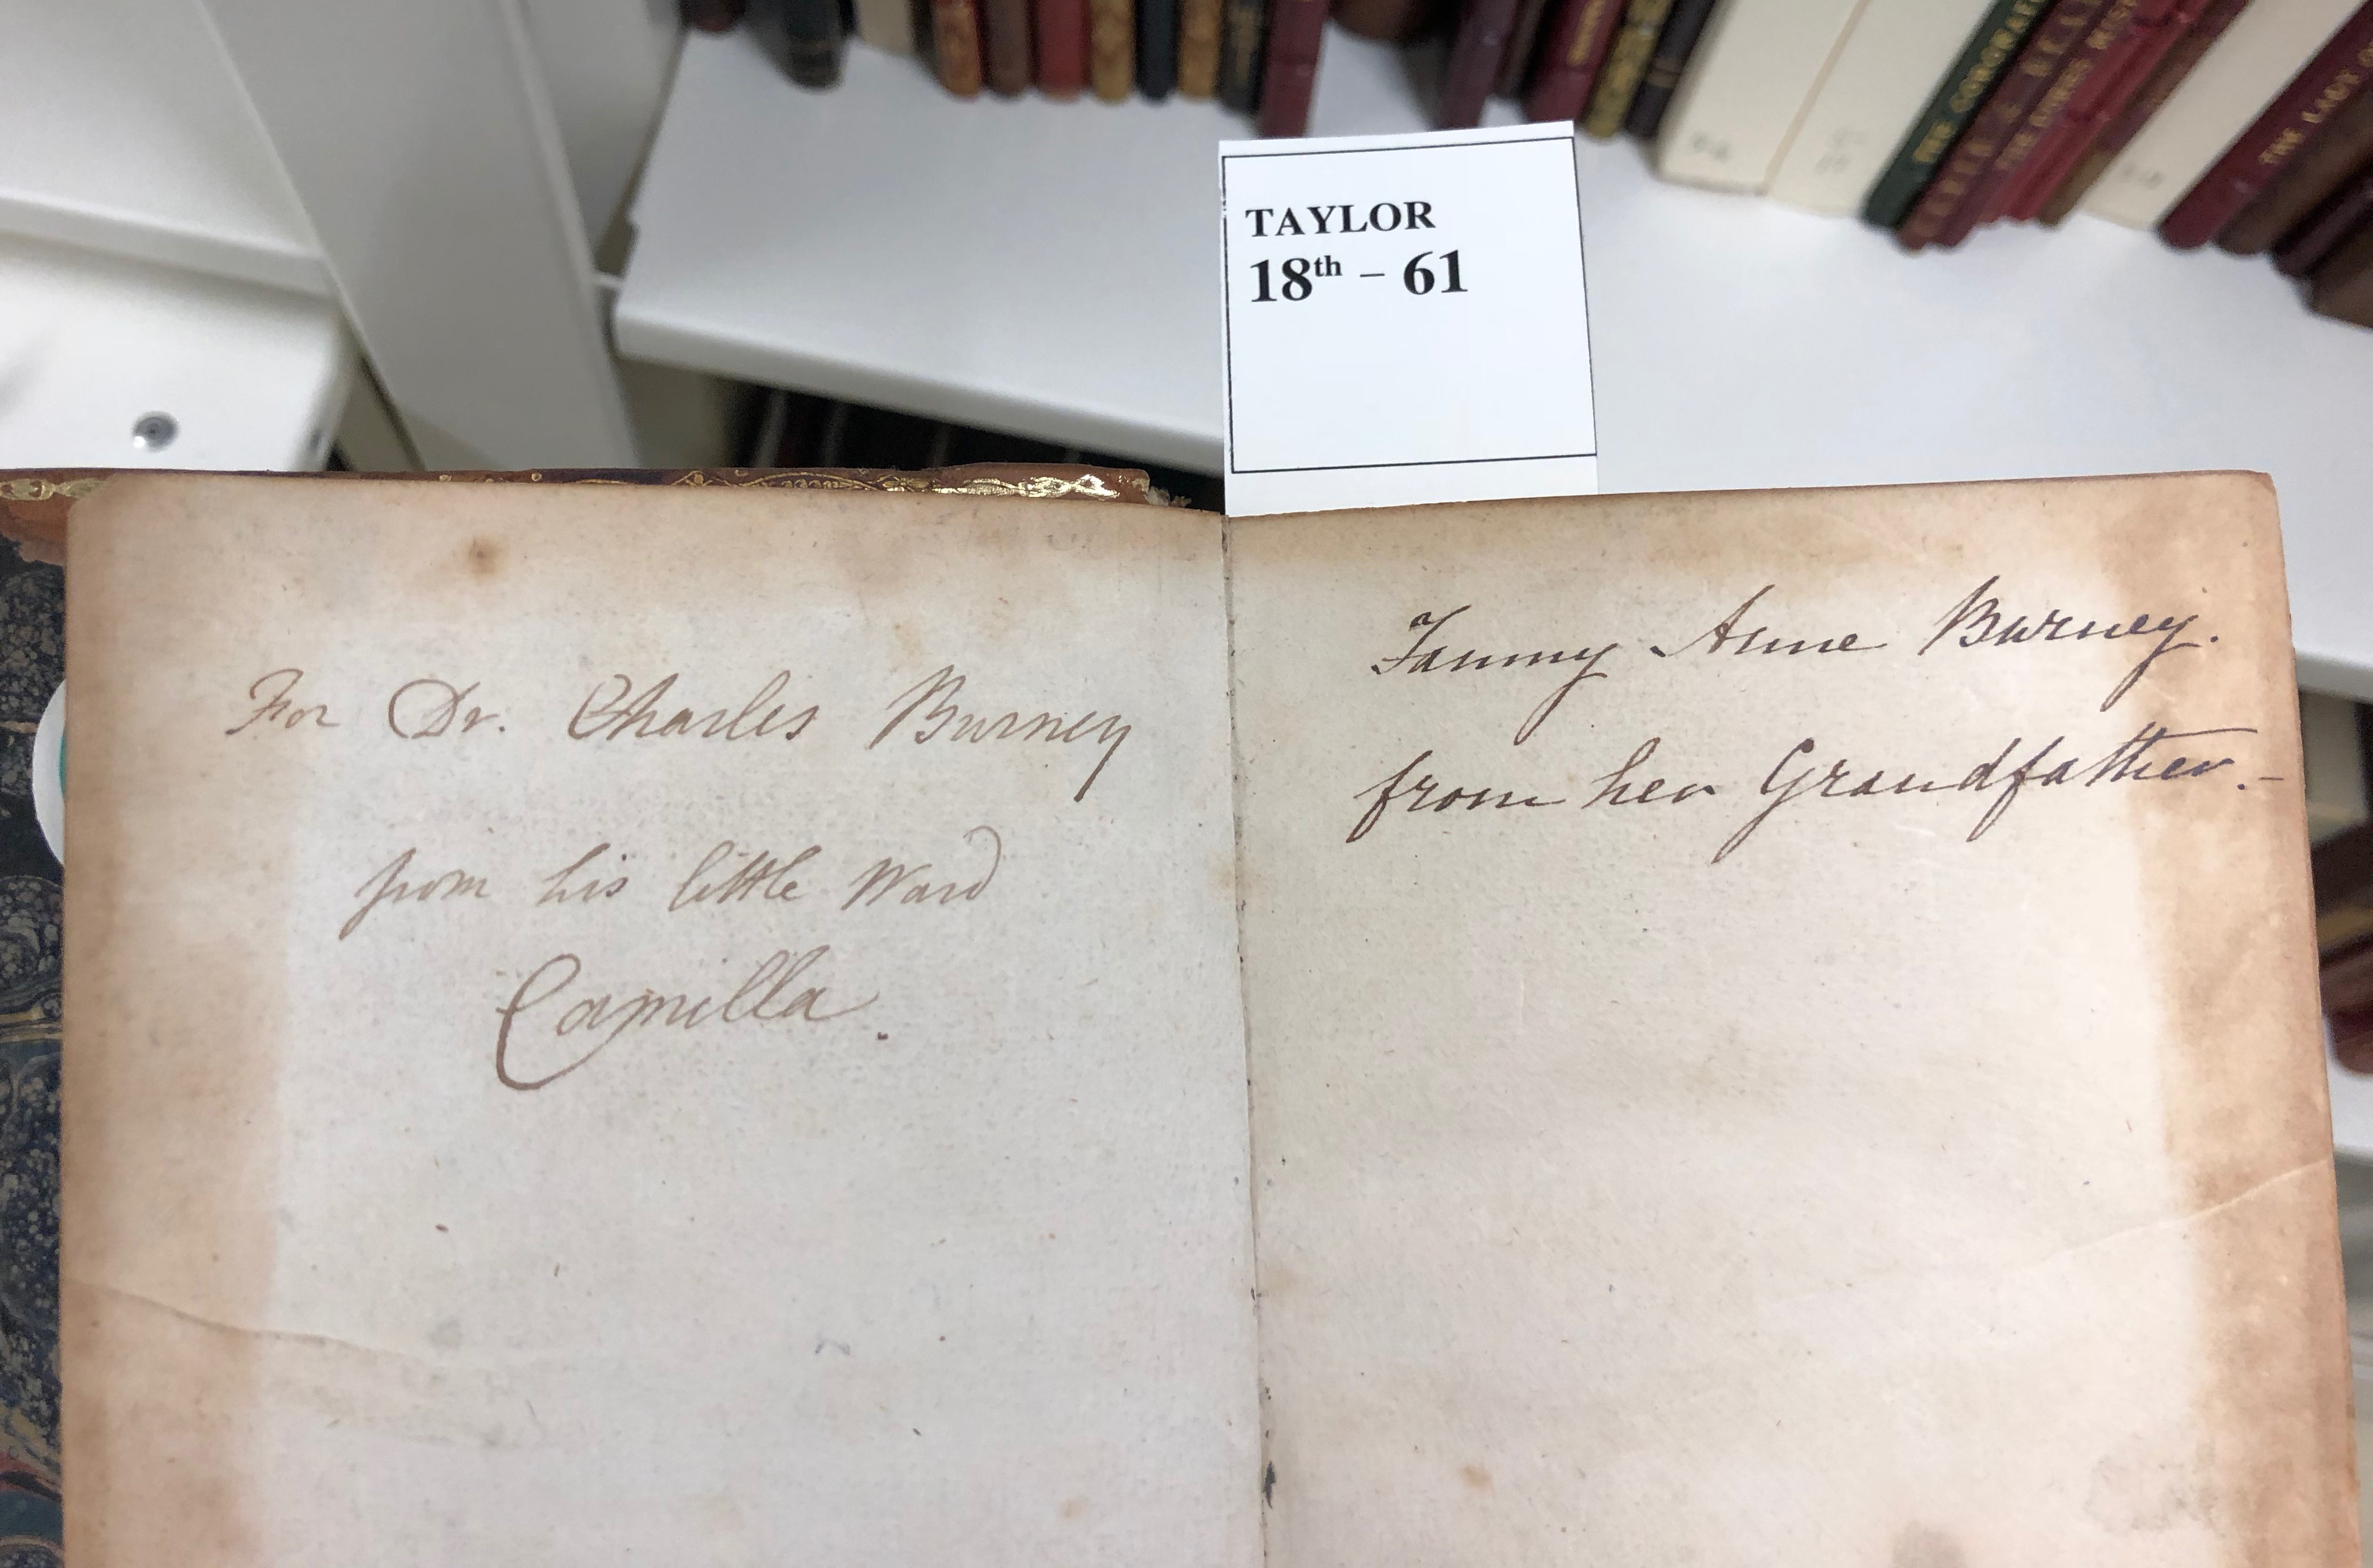 TAYLOR
18th – 61
For Dr. Charles Burney
from his little Ward
Camilla.
Fanny Anne Burney.
from her Grandfather.–
THE LADY